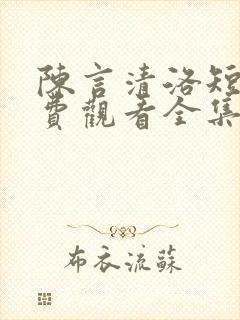 陳言清洛短
費觀看全集
布衣流蘇